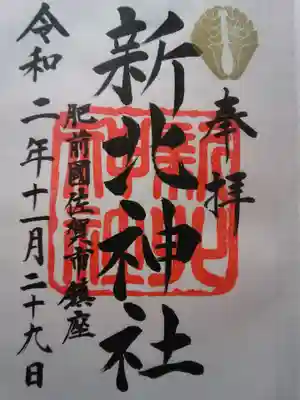 奉拝
新北神社
肥前國佐賀市鎮座
令和二年十一月二十九日
新北神社